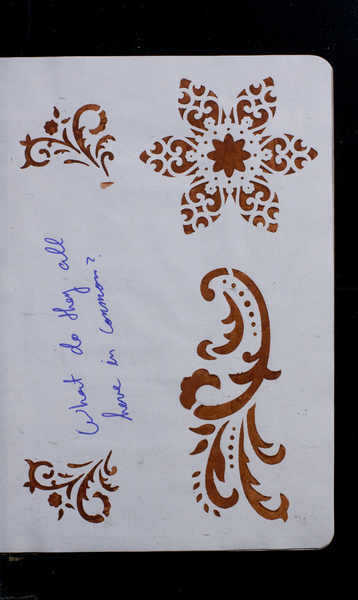 What do they all
have in common?